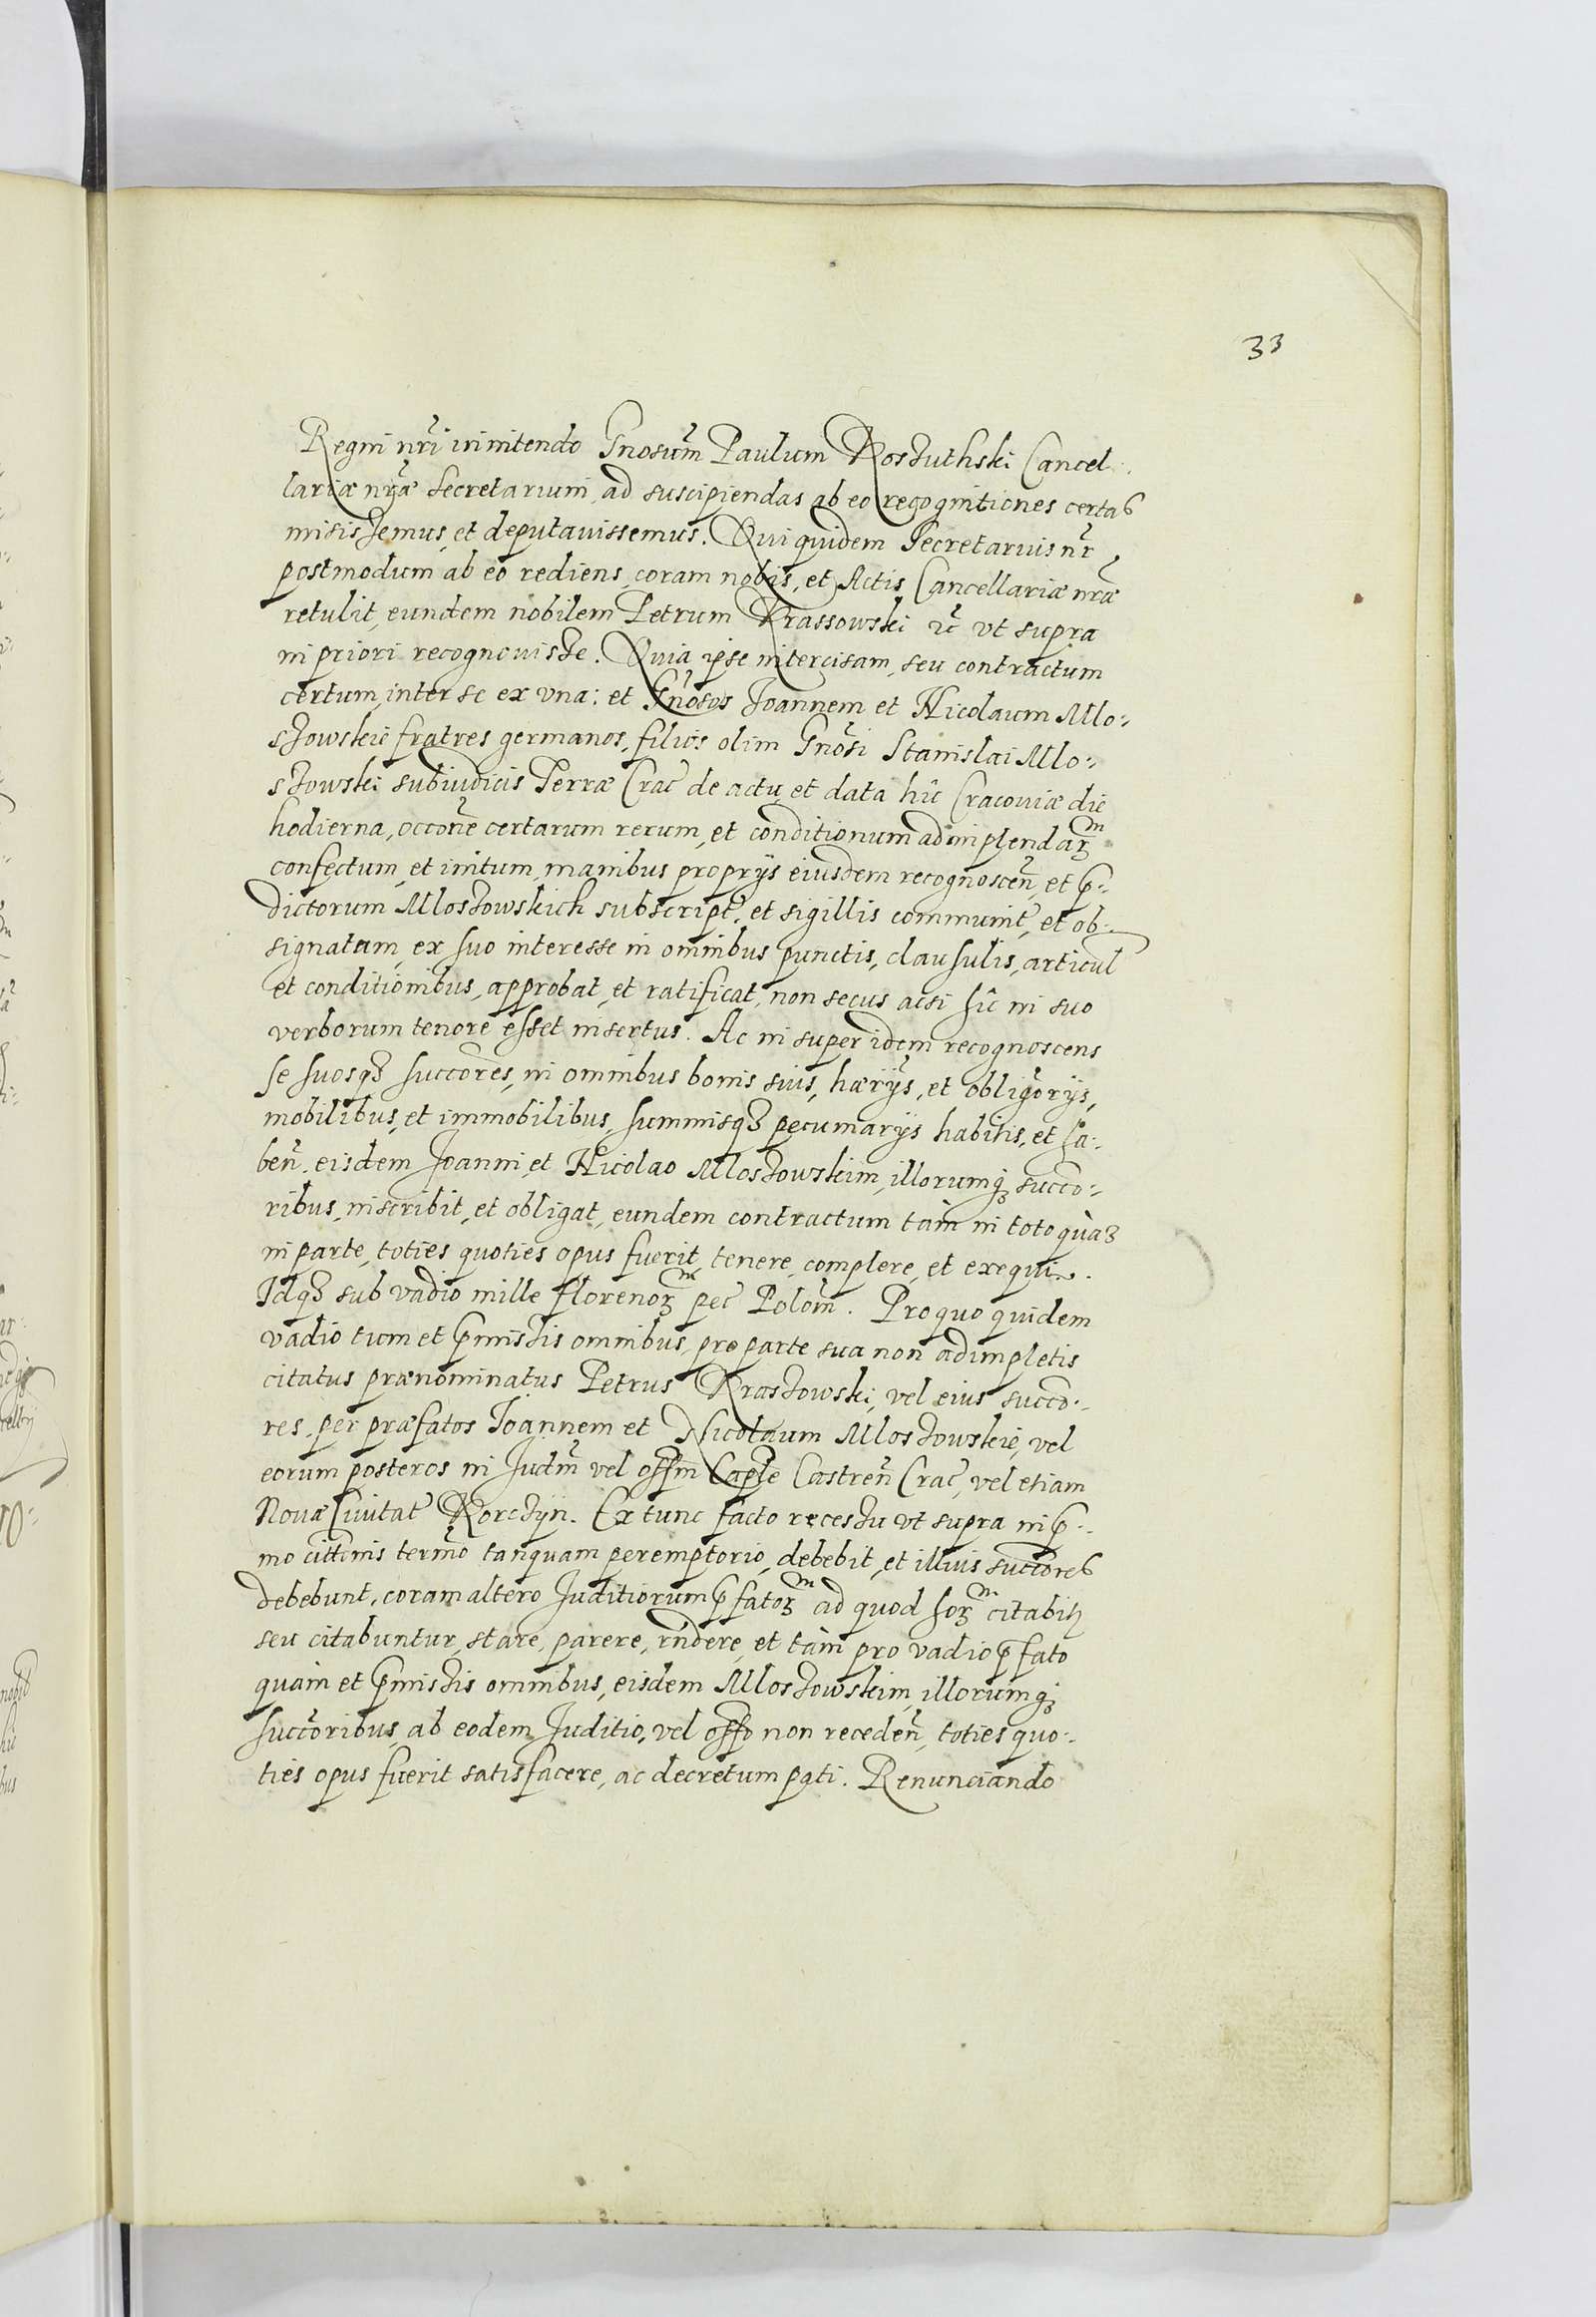 33
Regni nr̃i innitendo Gnosum̃ Paulum Koszuthski Cancel:
lariæ nr̃æ Secretarium, ad suscipiendas ab eo recognitiones certas
misissemus, et deputauissemus. Qui quidem Secretarius nr̃,
postmodum ab eo rediens, coram nobis, et Actis Cancellariæ nræ̃
retulit, eundem nobilem Petrum Krassowski ꝛc̃ vt supra
in priori recognouisse. Quia ipse intercisam, seu contractum
certum, inter se ex vna: et Gñosos Joannem et Nicolaum Mlo:
szowskie fratres germanos, filios olim Gnõsi Stanislai Mlo:
szowski subiudicis Terræ Crac̃ de actu, et data hîc Cracouiæ die
hodierna, occone͂ certarum rerum, et conditionum adimplendaꝝm
confectum, et initum, manibus proprijs eiusdem recognosceñ, et p̃:
dictorum Mloszowskich subscript̃, et sigillis communit̃, et ob:
signatam, ex suo interesse in omnibus punctis, clausulis, articul̃
et conditionibus, approbat, et ratificat, non secus acsi hîc in suo
verborum tenore esset insertus. Ac in super idem recognoscens
se suosqꝫ succores̃, in omnibus bonis suis, hærijs̃, et obligorijs̃,
mobilibus, et immobilibus, summisqꝫ pecuniarijs habitis, et ha:
beñ. eisdem Joanni, et Nicolao Mloszowskim, illorumqꝫ succo͂:
ribus, inscribit, et obligat, eundem contractum tàm in toto quàꝫ
in parte, toties quoties opus fuerit, tenere, complere, et exequi.
Idqꝫ sub vadio mille florenoꝝm pec̃ Polom̃. Pro quo quidem
vadio tum et p̃missis omnibus, pro parte sua non adimpletis
citatus prænominatus Petrus Krassowski, vel eius succo͂:
res, per præfatos Joannem et Nicolaum Mloszowskie, vel
eorum posteros in Judm̃ vel offm̃ Caple͂ Castreñ Crac̃, vel etiam
Nouæ Ciuitat̃ Korczÿn. Ex tunc facto recessu vt supra in p̃:
mo cittõnis termõ tanquam peremptorio, debebit, et illius succõres
debebunt, coram altero Juditiorum p̃fatoꝝm ad quod hoꝝm citabit̃
seu citabuntur, stare, parere, rñdere, et tàm pro vadio p̃fato
quàm et p̃missis omnibus, eisdem Mloszowskim, illorumqꝫ
succõribus, ab eodem Juditio, vel offo͂ non recedeñ, toties quo:
ties opus fuerit satisfacere, ac decretum pati. Renunciando